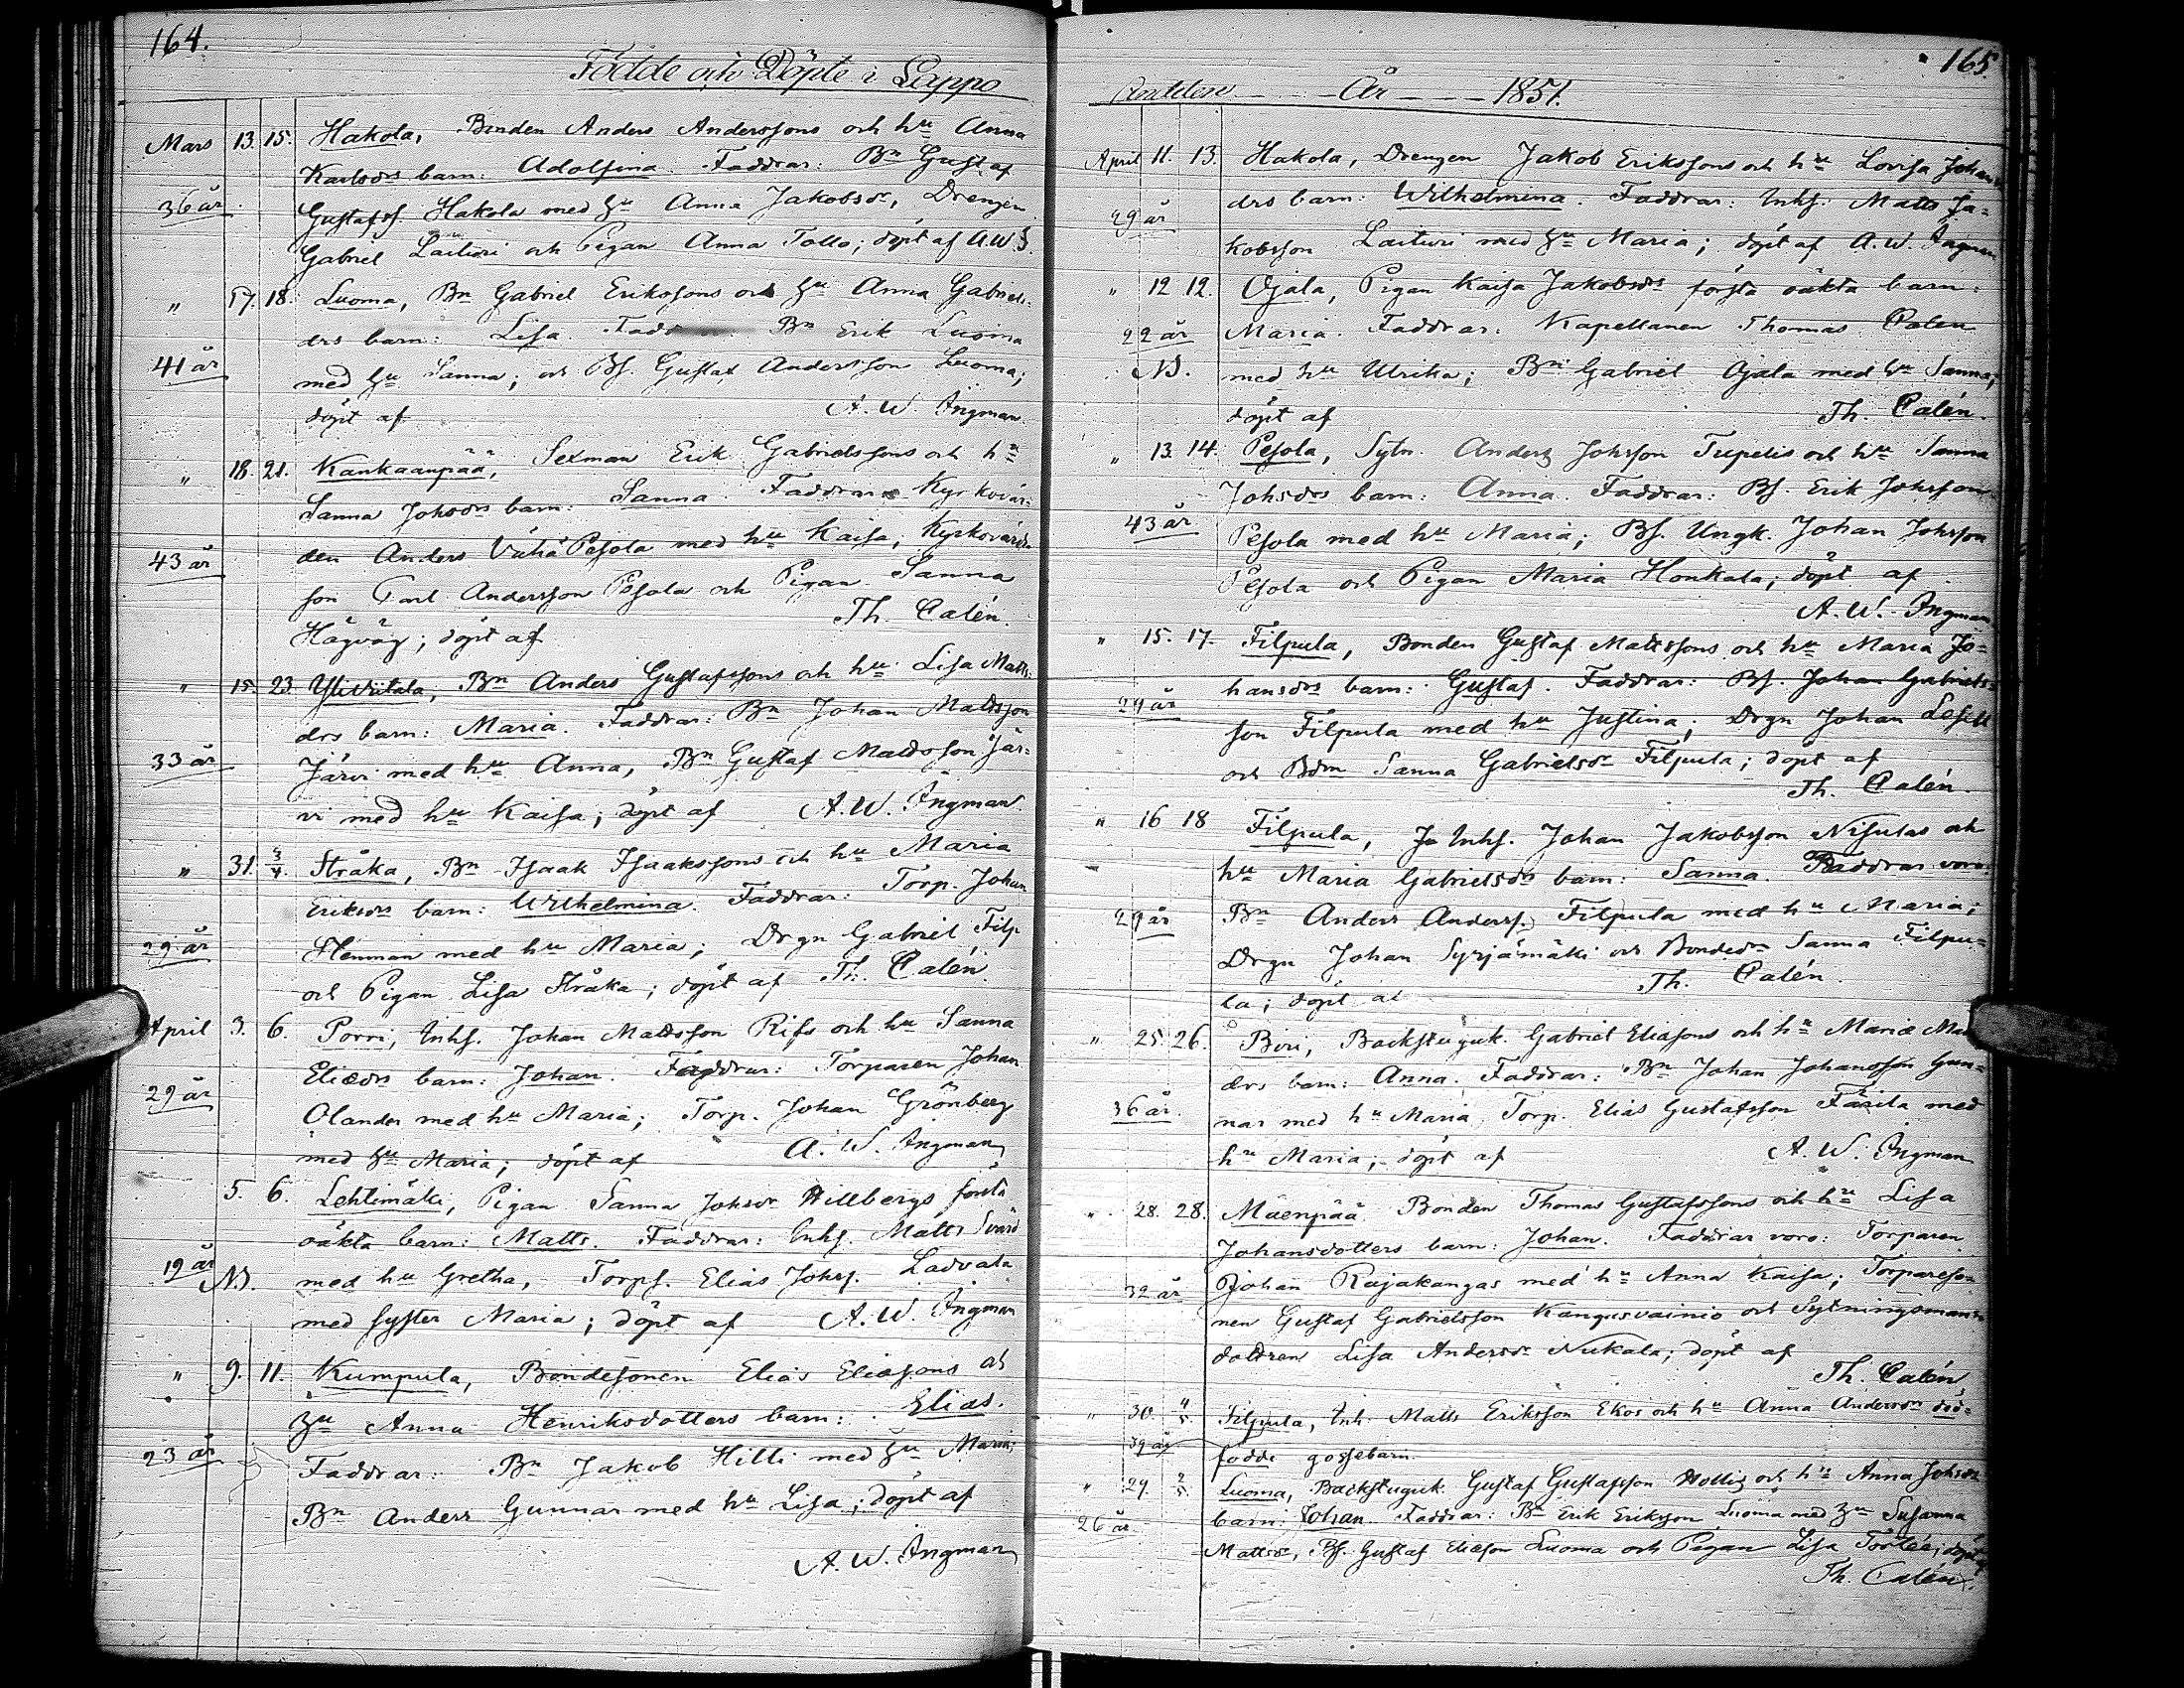 164.
Födde och Döpte i Lappo
Mars 13. 15. Hakola, Bonden Anders Anderssons och hu Anna
Karlsdrs barn: Adolfina. Faddrar: Bn Gustaf
36 år Gustafss. Hakola med hu Anna Jakobsdr, Drengen
Gabriel Laituri och Pigan Anna Tollo; döpt af A.W.I.
" 17. 18. Luoma, Bn Gabriel Erikssons och hu Anna Gabriels-
drs barn: Lisa. Faddrar: Bn Erik Luoma
41 år med hu Sanna; och Bs. Gustaf Andersson Luoma;
döpt af A. W. Ingman.
" 18. 21. Kankaanpää, Sexman Erik Gabrielssons och hu
Sanna Johsdrs barn: Sanna. Faddrar: Kyrkovär-
den Anders Vähä Pesola med hu Kaisa, Kyrkovärds
43 år
son Carl Andersson Pesola och Pigan Sanna
Hägväg; döpt af Th. Calén.
" 15. 23. Yliviitala, Bn Anders Gustafssons och hu Lisa Matts-
drs barn: Maria. Faddrar: Bn Johan Mattsson
33 år Järvi med hu Anna, Bn Gustaf Mattsson Jär-
vi med hu Kaisa; döpt af A. W. Ingman.
" 31. 3/4. Stråka, Bn Isaak Isaakssons och hu Maria
Eriksdrs barn: Wilhelmina. Faddrar: Torp. Johan
29 år Henman med hu Maria; Drgn Gabriel Filp
och Pigan Lisa Stråka; döpt af Th. Calén.
April 3. 6. Porri, Inhs. Johan Mattsson Rifs och hu Sanna
Eliædrs barn: Johan. Faddrar: Torparen Johan
29 år
Olander med hu Maria; Torp. Johan Grönberg
med hu Maria; döpt af A. W. Ingman
5. 6. Lehtimäki, Pigan Sanna Johsdr Hillbergs första
oäkta barn: Matts. Faddrar: Inhs. Matts Svärd
19 år NB. med hu Gretha, Torps. Elias Johss. Ladvala
med syster Maria; döpt af A. W. Ingman
" 9. 11. Kumpula, Bondesonen Elias Eliasons och
hu Anna Henriksdotters barn: Elias.
23 år Faddrar: Bn Jakob Hilli med hu Maria;
Bn Anders Gunnar med hu Lisa; döpt af
A. W. Ingman
165
År 1851.
April 11. 13. Hakola, Drengen Jakob Erikssons och hu Lovisa Johans
drs barn: Wilhelmina. Faddrar: Inhs: Matts Ja-
29 år
kobsson Laituri med hu Maria; döpt af A. W. Ingman
" 12 12. Ojala, Pigan Kaisa Jakobsdrs första oäkta barn:
22 år Maria. Faddrar: Kapellanen Thomas Calen
NB. med hu Ulrika; Bn Gabriel Ojala med hu Sanna;
döpt af Th. Calén.
" 13. 14. Pesola, Sytn. Anders Johsson Tupelis och hu Sanna
Johsdrs barn: Anna. Faddrar: Bs. Erik Johsson
43 år Pesola med hu Maria; Bs. Ungk. Johan Johsson
Pesola och Pigan Maria Honkala; döpt af
A. W. Ingman
" 15. 17. Filpula, Bonden Gustaf Mattssons och hu Maria Jo-
hansdrs barn: Gustaf. Faddrar: Bs. Johan Gabriels-
29 år
son Filpula med hu Justina; Drgn Johan
och Bdrn Sanna Gabrielsdr Filpula; döpt af
Th. Calén.
" 16 18 Filpula, Inhs. Johan Jakobsson Nisulas och
hu Maria Gabrielsdrs barn: Sanna. Faddrar voro:
29 år Bn Anders Anderss. Filpula med hu Maria;
Drgn Johan Syrjämäki och Bondedn Sanna Filpu-
la; döpt af Th. Calén.
" 25. 26. Biri, Backstuguk. Gabriel Eliasons och hu Maria
drs barn: Anna. Faddrar: Bn Johan Johansson Gun-
36 år.
nar med hu Maria, Torp. Elias Gustafsson Färila med
hu Maria; döpt af A. W. Ingman
" 28. 28. Mäenpää Bonden Thomas Gustafssons och hu Lisa
Johansdotters barn: Johan. Faddrar voro: Torparen
32 år Johan Rajakangas med hu Anna Kaisa; Torpareso-
nen Gustaf Gabrielsson Kangusvainio och Sytningsmans
dottren Lisa Andersdr Nukala; döpt af
Th. Calén
" 30. 4/5. Filpula, Inh. Matts Eriksson Ekos och hu Anna Andersdrs död-
39 år födde gossebarn.
" 29. 2/5. Luoma, Backstuguk. Gustaf Gustafsson Hollis och hu Anna Johsdrs
26 år barn: Johan. Faddrar: Bn Erik Eriksson Luoma med hu Susanna
Mattsdr, Bs. Gustaf Eliason Luoma och Pigan Lisa; döpt
Th. Calén.